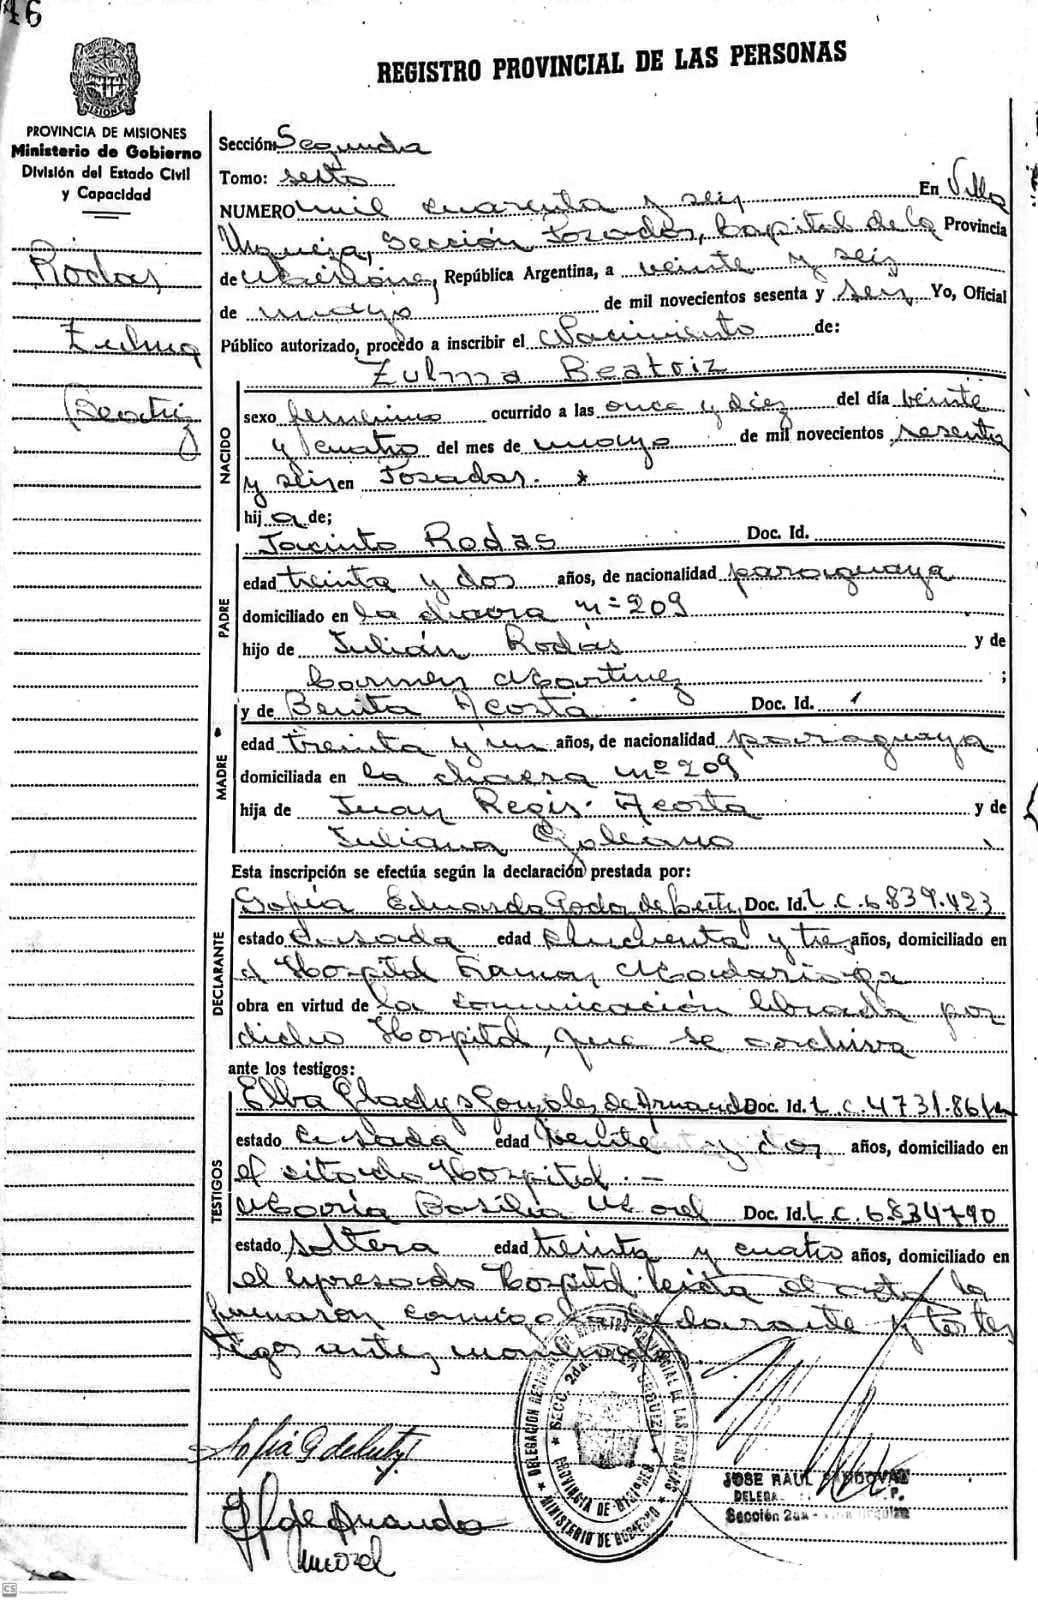 46
REGISTRO PROVINCIAL DE LAS PERSONAS
MISIONES
PROVINCIA DE MISIONES
Ministerio de Gobierno
División del Estado Civil
y Capacidad
Rodas
Zulma
Beatriz
Sección: Segunda
Tomo: sesto
NUMERO mil cuarenta y seis En Villa
Urquiza, Sección Posadas, Capital de la Provincia
de Misiones, República Argentina, a veinte y seis
de mayo de mil novecientos sesenta y seis Yo, Oficial
Público autorizado, procedo a inscribir el Nacimiento de:
Zulma Beatriz
NACIDO
sexo femenino ocurrido a las once y diez del día veinte
y cuatro del mes de mayo de mil novecientos sesenta
y seis en Posadas.
hij a de;
PADRE
Jacinto Rodas Doc. Id.
edad treinta y dos años, de nacionalidad paraguaya
domiciliado en la chacra nº 209
hijo de Julián Rodas y de
Carmen Martinez ;
MADRE
y de Benita Acosta Doc. Id.
edad treinta y un años, de nacionalidad paraguaya
domiciliada en la chacra nº 209
hija de Juan Regis Acosta y de
Juliana Galeano
Esta inscripción se efectúa según la declaración prestada por:
DECLARANTE
Sofía Eduarda Godoy de Doc. Id. L.C. 6839.423
estado casada edad cincuenta y tres años, domiciliado en
el Hospital Ramon Madariaga
obra en virtud de la comunicación librada por
dicho Hospital, que se archiva
ante los testigos:
TESTIGOS
Elba Gladys Gonzalez de Armando Doc. Id. L.C. 4731.86
estado casada edad veinte y dos años, domiciliado en
el citado Hospital.-
María Basilia Morel Doc. Id. L.C. 6834790
estado soltera edad treinta y cuatro años, domiciliado en
el expresado Hospital. leida el acta la
firmaron conmigo la declarante y los tes
tigos antes nombrados.
DELEGACION REGISTRO PROVINCIAL DE LAS PERSONAS
SECC. 2da. URQUIZA
PROVINCIA DE MISIONES
MINISTERIO DE GOBIERNO
JOSE RAUL SANDOVAL
DELEGA P.
Sección 2da - Villa Urquiza
Sofía G de
de Armando
Morel
CS